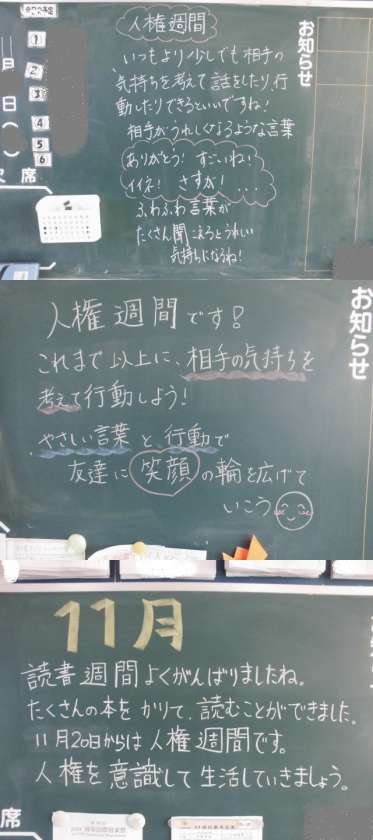 お知らせ
人権週間
いつもより少しでも相手の
気持ちを考えて話をしたり、行
動したりできるといいですね!
相手がうれしくなるような言葉
ありがとう! すごいね!
イイネ! さすが! ...
ふわふわ言葉が
たくさん聞こえるとうれしい
気持ちになるね!
1
月
2
3
日
4
5
6
欠席
お知らせ
人権週間です!
これまで以上に、相手の気持ちを
考えて行動しよう!
やさしい言葉と、行動で
友達に笑顔の輪を広げて
いこう
11月
読書週間よくがんばりましたね。
たくさんの本をかりて、読むことができました。
11月20日からは人権週間です。
人権を意識して生活していきましょう。
席